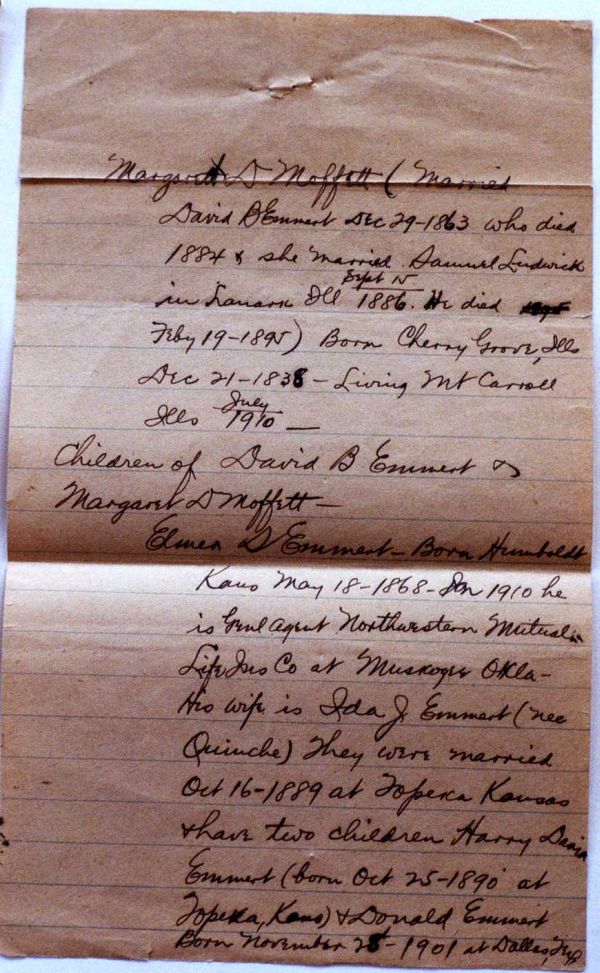 Margaret D Moffett ( Married
David B Emmert Dec 29-1863 who died
1884 & she married Samuel Ludwick
Sept 15
in Lanark Ill 1886. He died
Feby 19-1895) Born Cherry Grove, Ills
Dec 21-1838 - Living Mt Carroll
Ills July 1910 —
Children of David B Emmert &
Margaret D Moffett —
Elmer D Emmert - Born Humboldt
Kans May 18-1868 - In 1910 he
is Genl Agent Northwestern Mutual
Life Ins Co at Muskogee Okla -
His wife is Ida J Emmert (nee
Quinche) They were married
Oct 16-1889 at Topeka Kansas
& have two children Harry David
Emmert (born Oct 25-1890 at
Topeka, Kans) & Donald Emmert
Born November 28 - 1901 at Dallas,